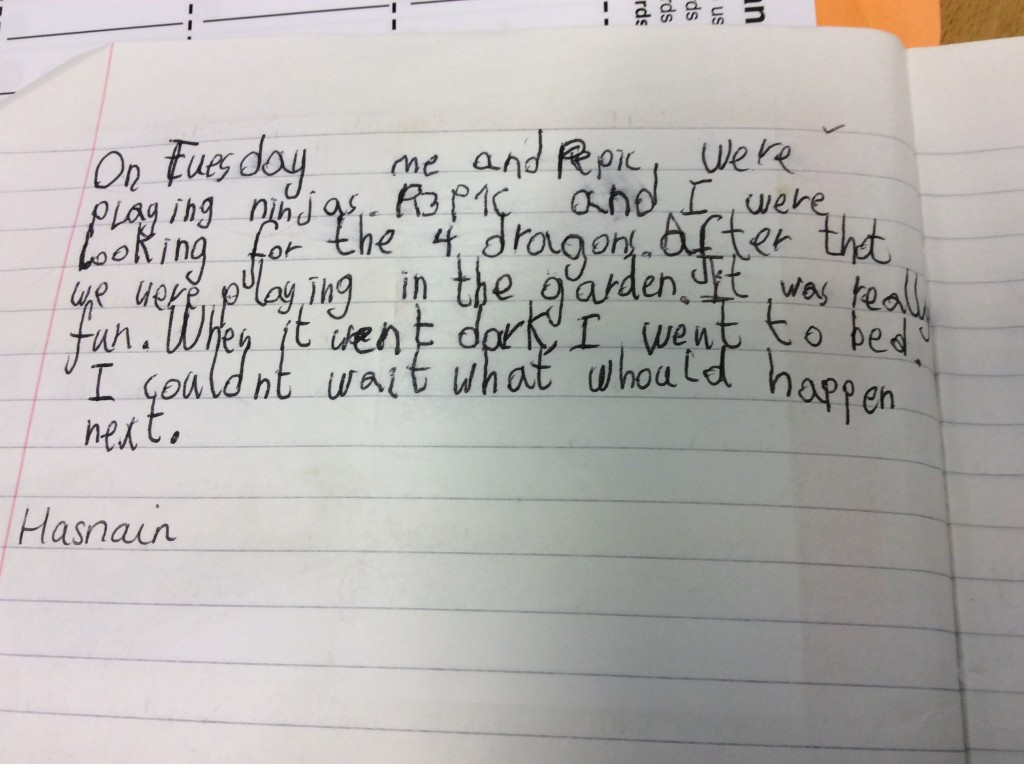 n
us
rds
rds
rds
On Tuesday me and Repic, were
playing ninjas. R3P1C and I were
Looking for the 4 dragons. After that
we were playing in the garden. It was really
fun. When it went dark, I went to bed.
I couldnt wait what whould happen
next.
Hasnain